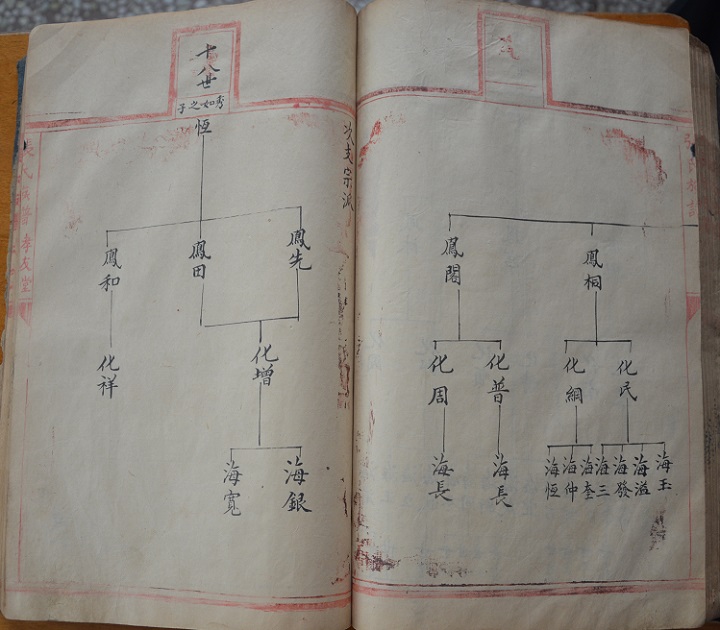 鳳桐
鳳閣
化民
化綱
化普
化周
海玉
海溢
海發
海三
海奎
海仲
海恆
海長
海長
次支宗派
十八世
秀如之子
恆
鳳先
鳳田
鳳和
化增
化祥
海銀
海寬
孝友堂